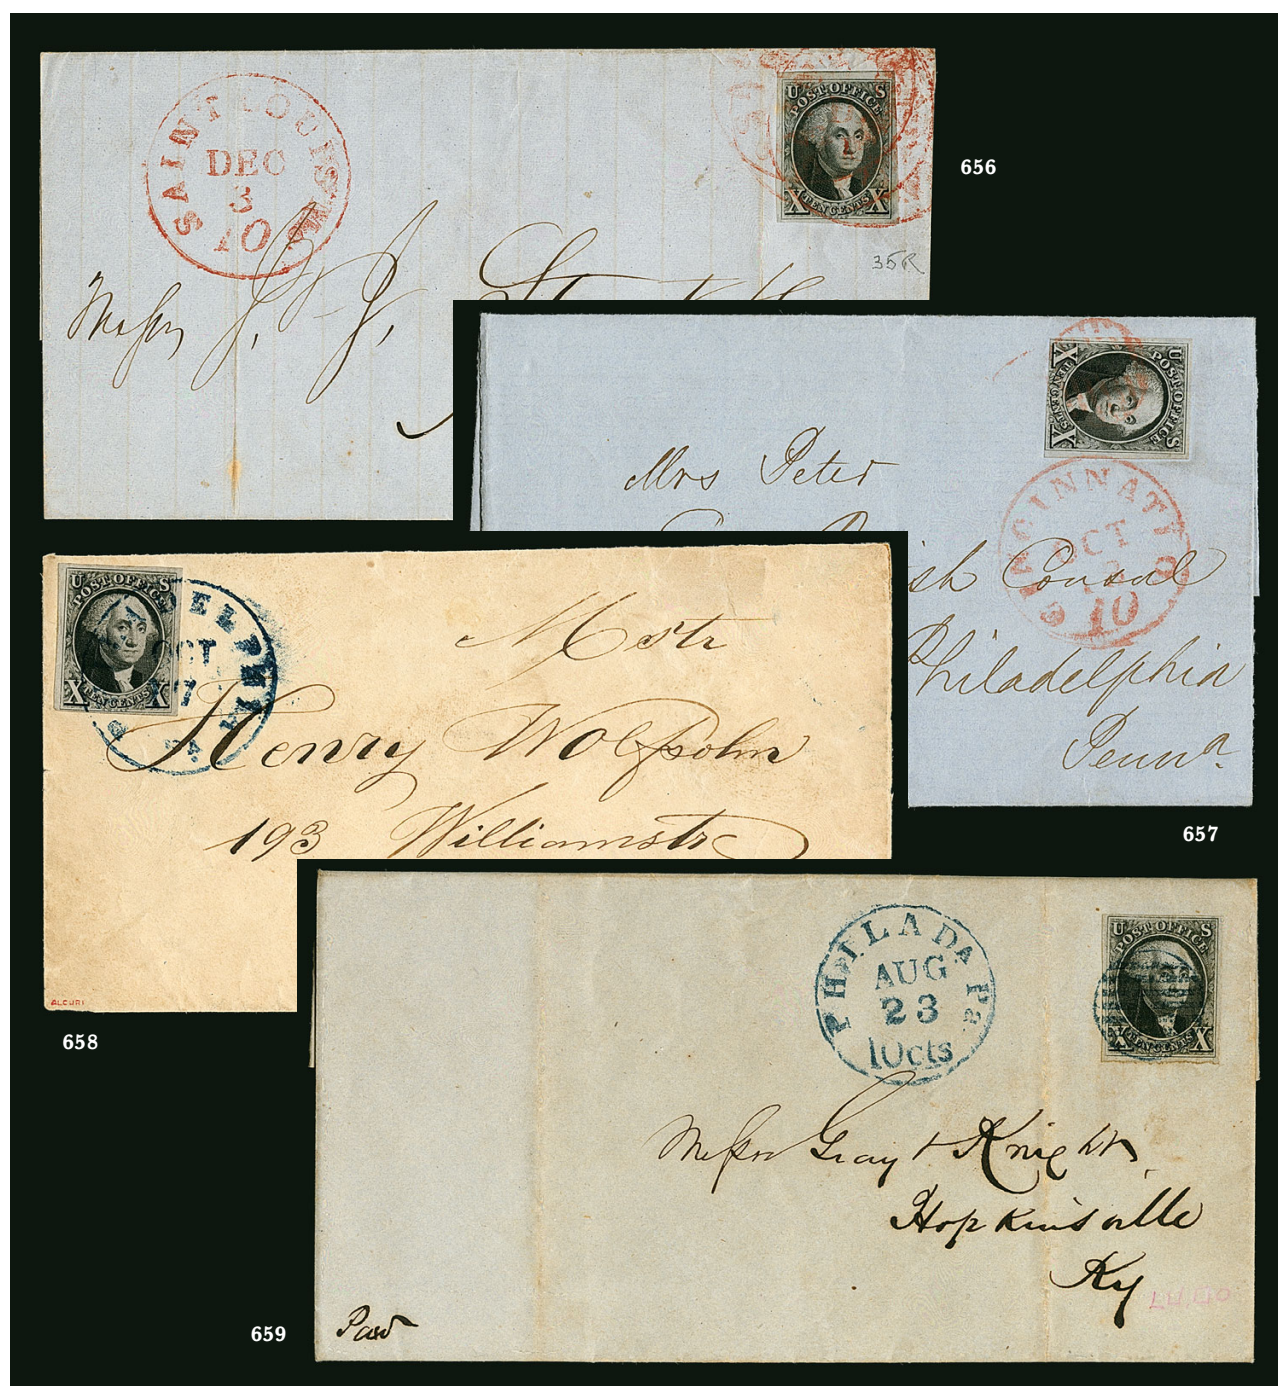 SAINT LOUIS Mo.
DEC
3
10
U S
POST OFFICE
X TEN CENTS X
35R
656
Messrs J. J.
U S
POST OFFICE
X TEN CENTS X
Mrs Peter
CINCINNATI O.
OCT
10
ish Consul
Philadelphia
Penna.
657
U S
POST OFFICE
X TEN CENTS X
PHILADELPHIA Pa.
OCT
7
Mstr
Henry Wolfsohn
193 Williamstr
ALCURI
658
PHILADA Pa.
AUG
23
10cts
U S
POST OFFICE
X TEN CENTS X
Messrs Gray & Knight
Hopkinsville
Ky
Paid
659